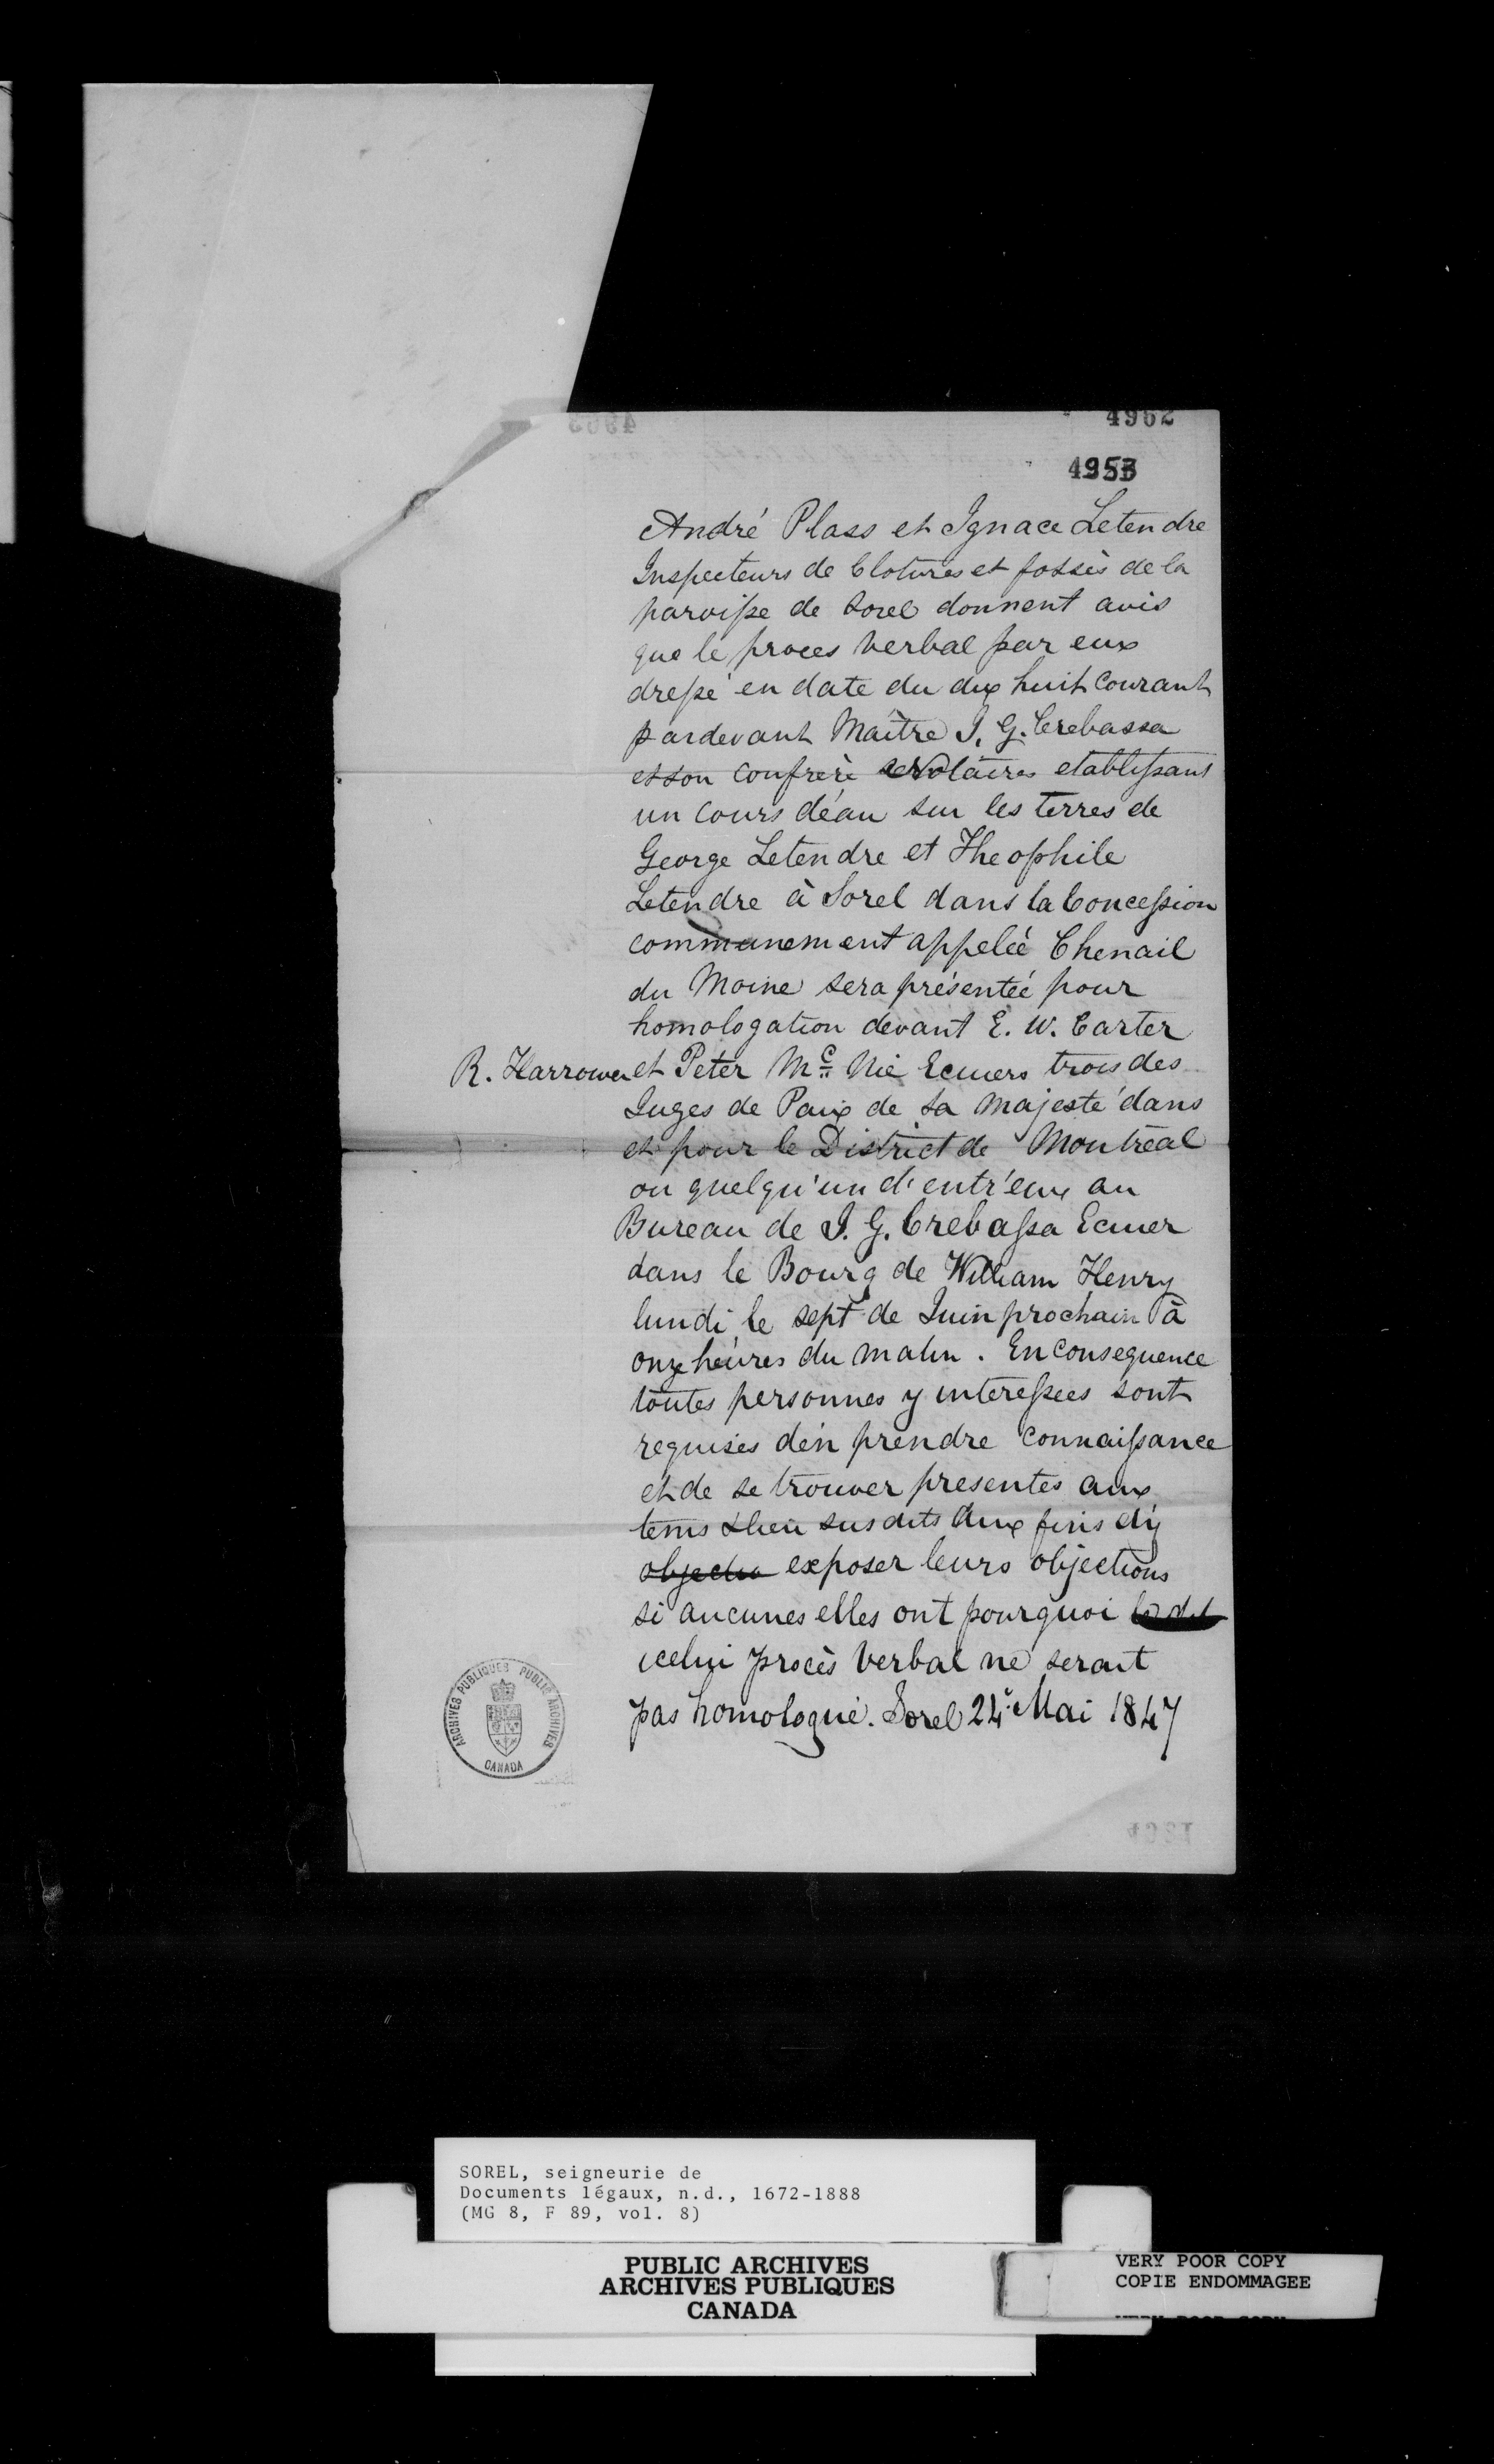 4962
4953
André Plass et Ignace Letendre
Inspecteurs de Clotures et fossès de la
paroisse de Sorel donnent avis
que le proces verbal par eux
dressé en date du dix huit Courant
pardevant Maître J. G. Crebassa
et son confrère Notaires etablissant
un Cours déau sur les terres de
George Letendre et Theophile
Letendre à Sorel dans la Concession
communement appeleé Chenail
du Moine sera présenteé pour
homologation devant E. W. Carter
R. Harrower et Peter Mc Nie Ecuiers trois des
Juges de Paix de Sa Majesté dans
et pour le District de Montreal
ou quelqu'un d'entr'eux au
Bureau de J. G. Crebassa Ecuier
dans le Bourg de William Henry
lundi le sept de Juin prochain à
onze heures du matin. En consequence
toutes personnes y interessees sont
requises d'en prendre connaissance
et de se trouver presentes aux
tems & lieu susdits aux fins d'y
objection exposer leurs objections
si aucunes elles ont pourquoi ledit
icelui procès verbal ne serait
pas homologué. Sorel 24 Mai 1847
ARCHIVES PUBLIQUES PUBLIC ARCHIVES
CANADA
SOREL, seigneurie de
Documents légaux, n.d., 1672-1888
(MG 8, F 89, vol. 8)
PUBLIC ARCHIVES
ARCHIVES PUBLIQUES
CANADA
VERY POOR COPY
COPIE ENDOMMAGEE
VERY POOR COPY